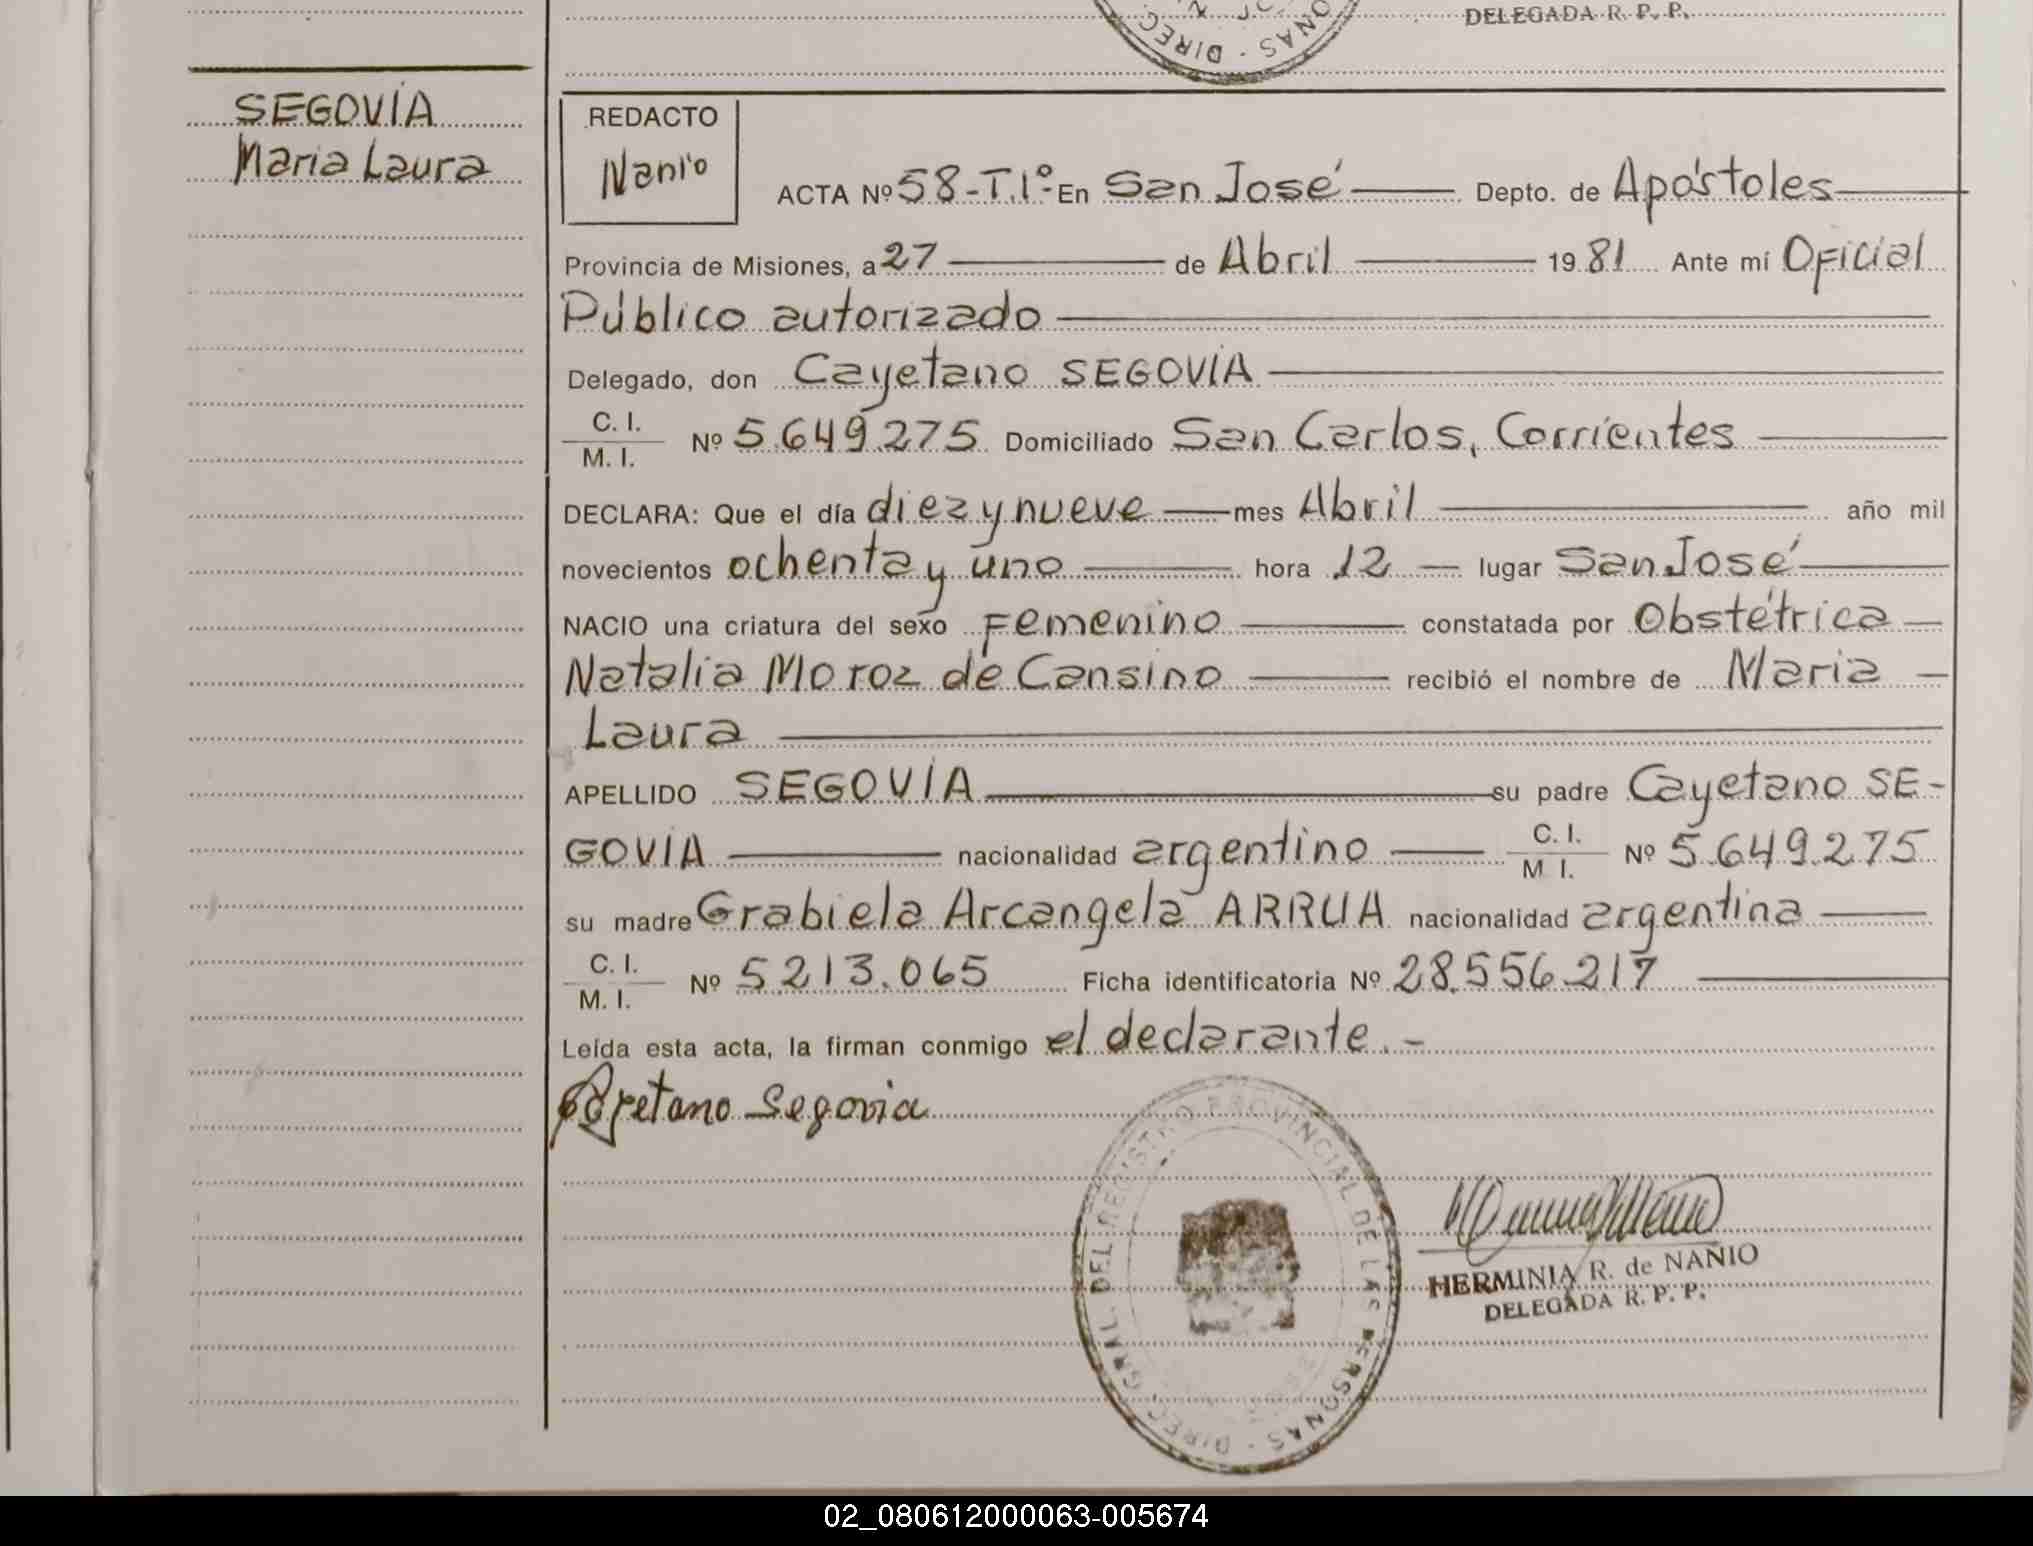 DELEGADA R. P. P.
SEGOVIA
Maria Laura
REDACTO
Nanio
ACTA Nº 58-T.1º- En San José Depto. de Apóstoles
Provincia de Misiones, a 27 de Abril 1981 Ante mí Oficial
Público autorizado
Delegado, don Cayetano SEGOVIA
C. I.
M. I. Nº 5.649.275 Domiciliado San Carlos, Corrientes
DECLARA: Que el día diez y nueve mes Abril año mil
novecientos ochenta y uno hora 12 lugar San José
NACIO una criatura del sexo Femenino constatada por Obstétrica
Natalia Moroz de Cansino recibió el nombre de Maria
Laura
APELLIDO SEGOVIA su padre Cayetano SE-
GOVIA nacionalidad argentino C. I. M I. Nº 5.649.275
su madre Grabiela Arcangela ARRUA nacionalidad argentina
C. I.
M. I. Nº 5.213.065 Ficha identificatoria Nº 28.556.217
Leída esta acta, la firman conmigo el declarante.-
Cayetano Segovia
DIREC. GRAL. DEL REGISTRO PROVINCIAL DE LAS PERSONAS
HERMINIA R. de NAÑIO
DELEGADA R. P. P.
02_080612000063-005674